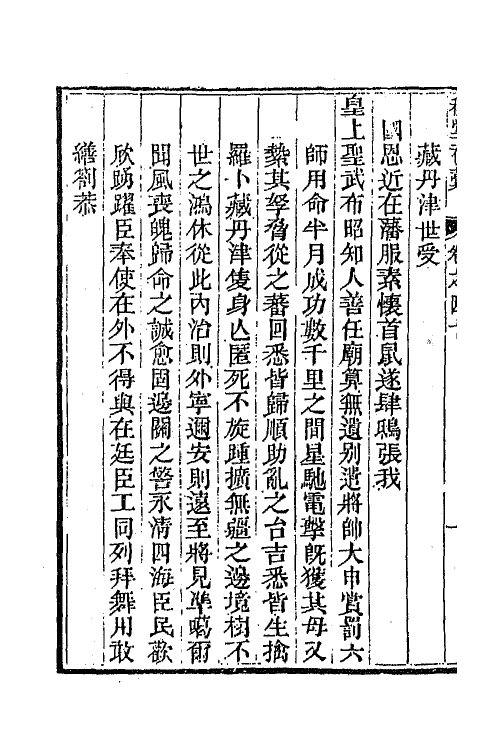 藏丹津世受
國恩近在藩服素懷首鼠遂肆鴟張我
皇上聖武布昭知人善任廟算無遺別遣將帥大申賞罰六
師用命半月成功數千里之間星馳電擊旣獲其母又
縶其孥脅從之蕃回悉皆歸順助亂之台吉悉皆生擒
羅卜藏丹津隻身亾匿死不旋踵擴無疆之邊境樹不
世之鴻休從此內治則外寧邇安則遠至將見準噶爾
聞風喪魄歸命之誠愈固邊關之警永清四海臣民歡
欣踴躍臣奉使在外不得與在廷臣工同列拜舞用敢
繕劄恭